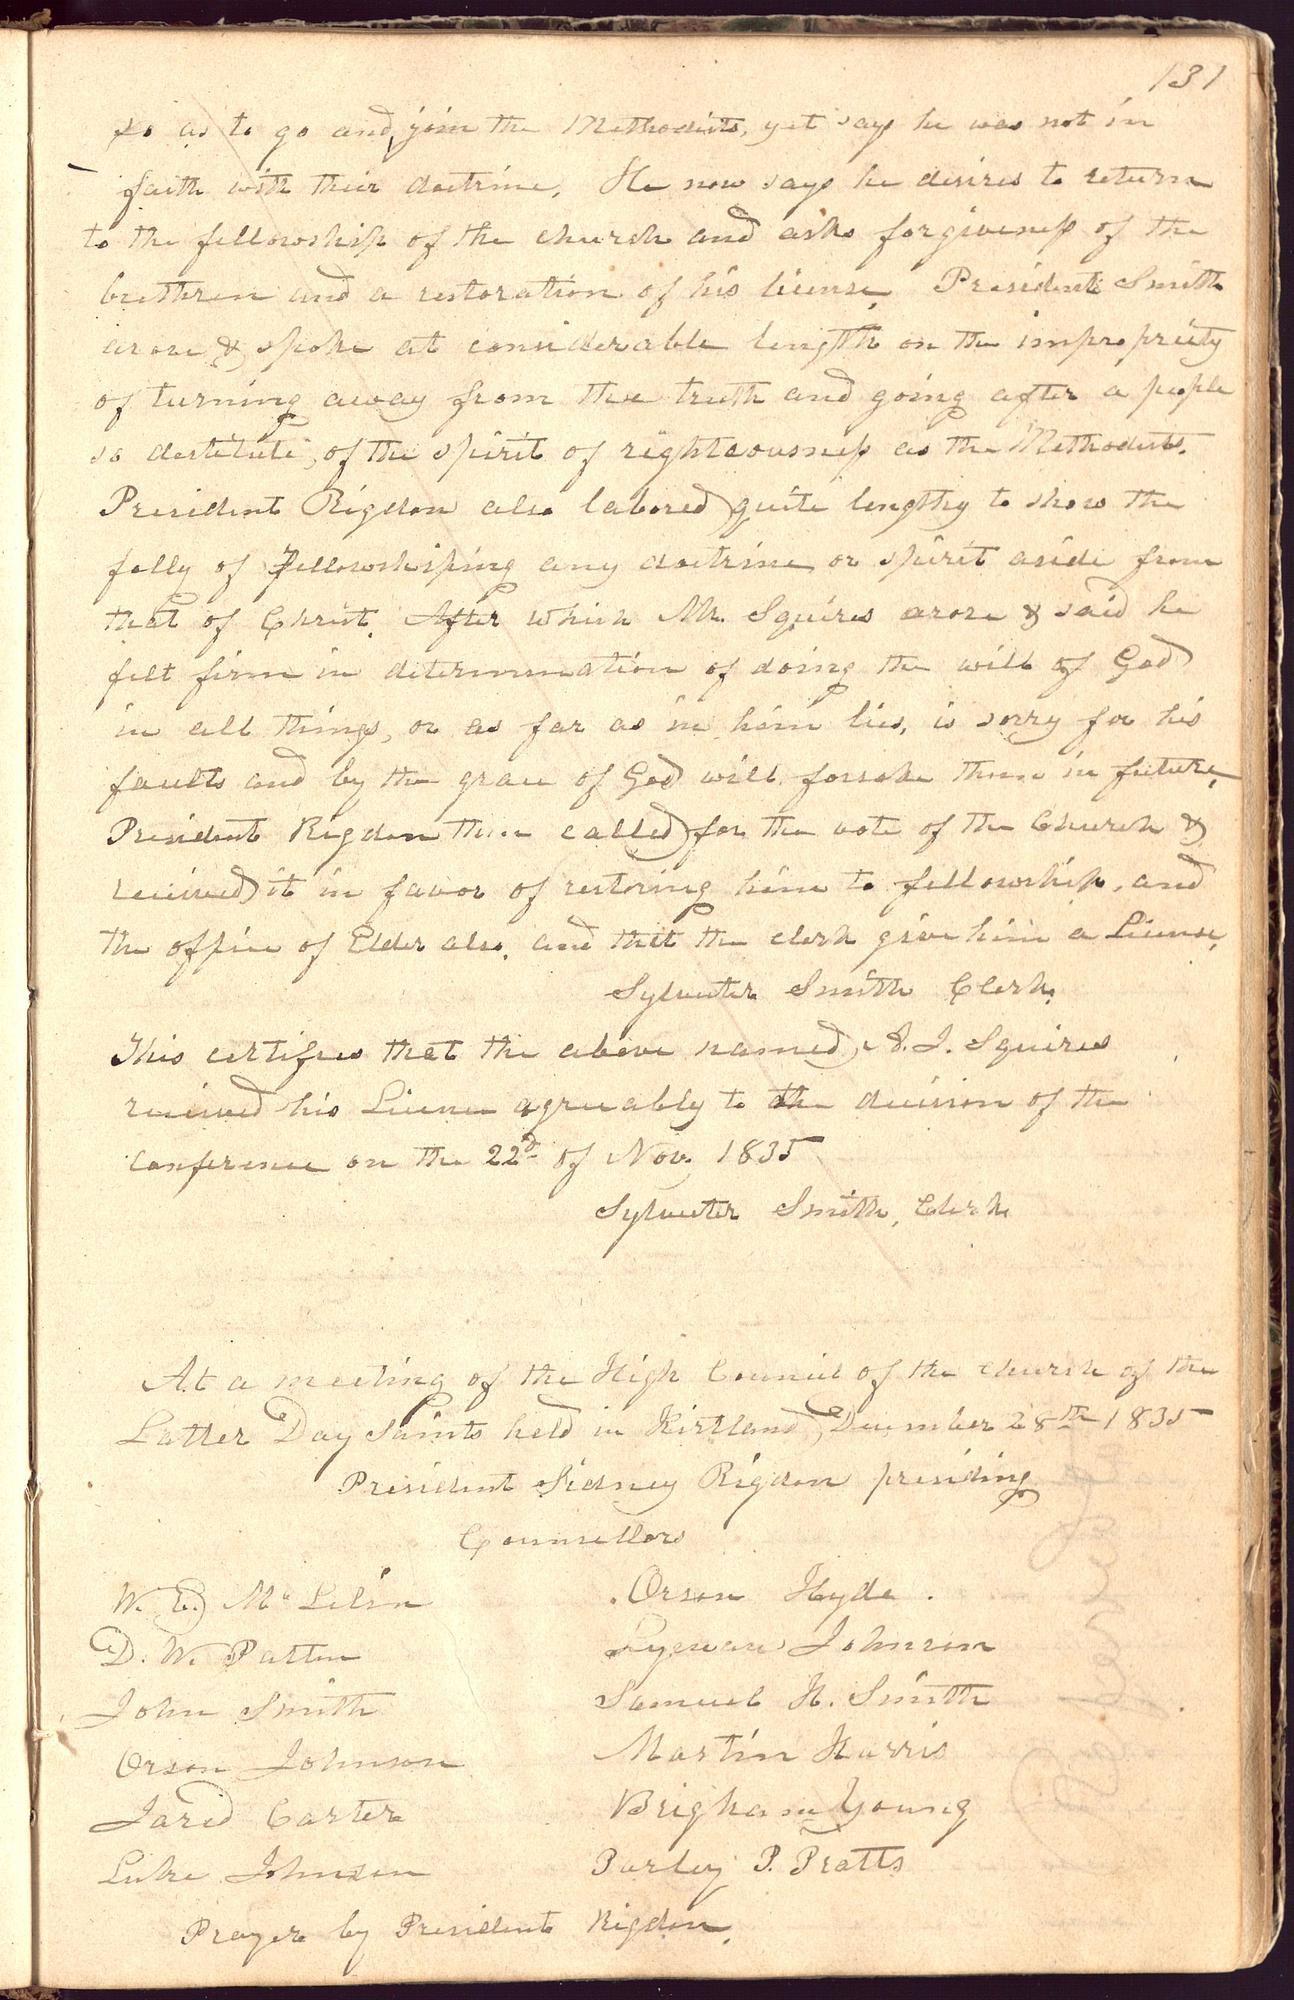 131
so as to go and join the Methodists, yet says he was not in
faith with their doctrine, He now says he desires to return
to the fellowship of the church and asks forgiveness of the
brethren and a restoration of his license. President Smith
arose & spoke at considerable length on the impropriety
of turning away from the truth and going after a people
so destitute, of the spirit of righteousness as the Methodists.
President Rigdon also labored quite lengthy to show the
folly of Fellowshiping any doctrine or spirit aside from
that of Christ. After which Mr. Squires arose & said he
felt firm in determination of doing the will of God
in all things, or as far as in him lies, is sorry for his
faults and by the grace of God will forsake them in future,
President Rigdon then called for the vote of the Church &
received it in favor of restoring him to fellowship, and
the office of Elder also, and that the clerk give him a License,
Sylvester Smith Clerk.
This certifies that the above named, A. J. Squires
received his License agreeably to the decision of the
conference on the 22d of Nov. 1835
Sylvester Smith, Clerk
At a meeting of the High Council of the church of the
Latter Day Saints held in Kirtland, December 28th 1835
President Sidney Rigdon presiding
Counsellors
W. E. Mc Lelin Orson Hyde.
D. W. Patten Lyman Johnson
John Smith Samuel H. Smith
Orson Johnson Martin Harris
Jared Carter Brigham Young
Luke Johnson Parley P. Pratts
Prayer by President Rigdon.